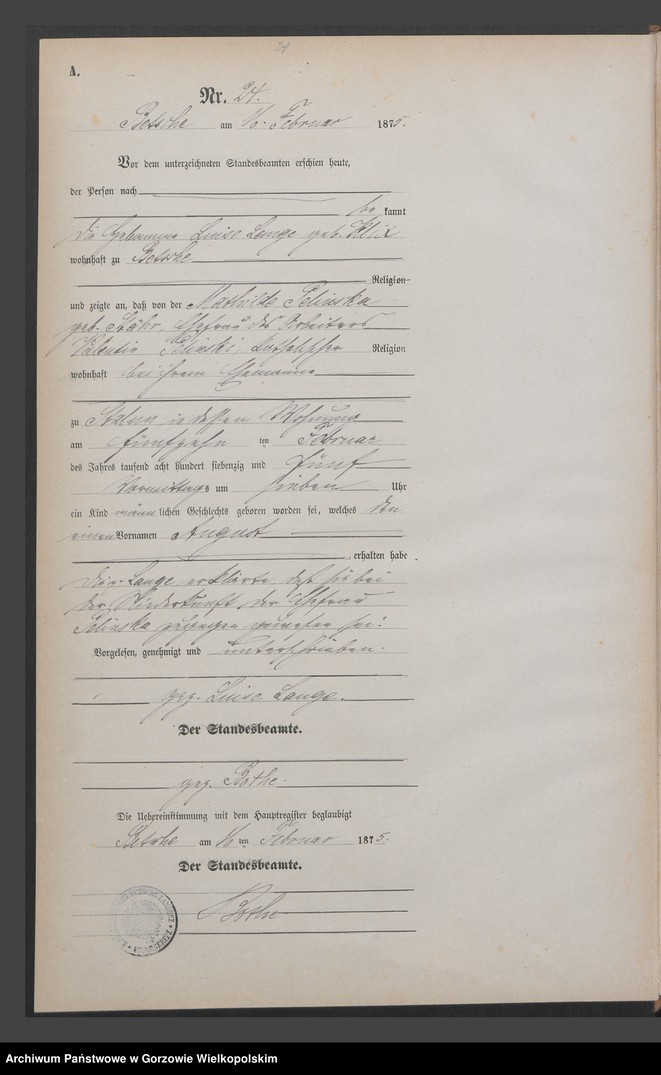 24
A.
Nr. 24.
Betsche am 16. Februar 1875.
Vor dem unterzeichneten Standesbeamten erschien heute,
der Person nach
be kannt
die Hebamme Luise Lange geb. Klix
wohnhaft zu Betsche
Religion
und zeigte an, daß von der Mathilde Selinska
geb. Stähr, Ehefrau des Arbeiters
Valentin Selinski, katholischer Religion
wohnhaft bei ihrem Ehemanne
zu in dessen Wohnung
am fünfzehn ten Februar
des Jahres tausend acht hundert siebenzig und fünf
Vormittags um sieben Uhr
ein Kind männlichen Geschlechts geboren worden sei, welches den
einen Vornamen August
erhalten habe
Die p. Lange erklärte, daß sie bei
der Niederkunft der Ehefrau
Selinska zugegen gewesen sei.
Vorgelesen, genehmigt und unterschrieben.
gez. Luise Lange.
Der Standesbeamte.
gez. Bothe.
Die Uebereinstimmung mit dem Hauptregister beglaubigt
Betsche am 16 ten Februar 1875.
Der Standesbeamte.
Bothe
Archiwum Państwowe w Gorzowie Wielkopolskim